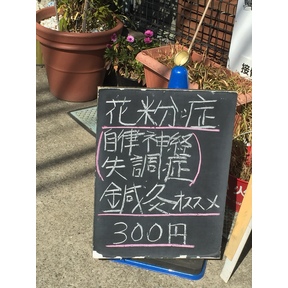 花粉症
(自律神経
失調症)
鍼灸オススメ
300円